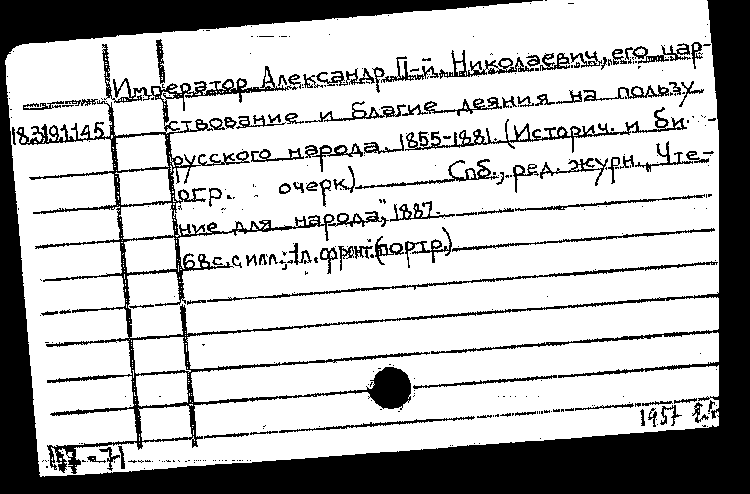 Император Александр II-й. Николаевич, его цар-
18.319.1.145 ствование и благие деяния на пользу
русского народа. 1855-1881. (Историч. и би-
огр. очерк) Спб., ред. журн. „Чте-
ние для народа“, 1887.
68 с. с илл.; 1 л. фронт. (портр.)
1957
157-71